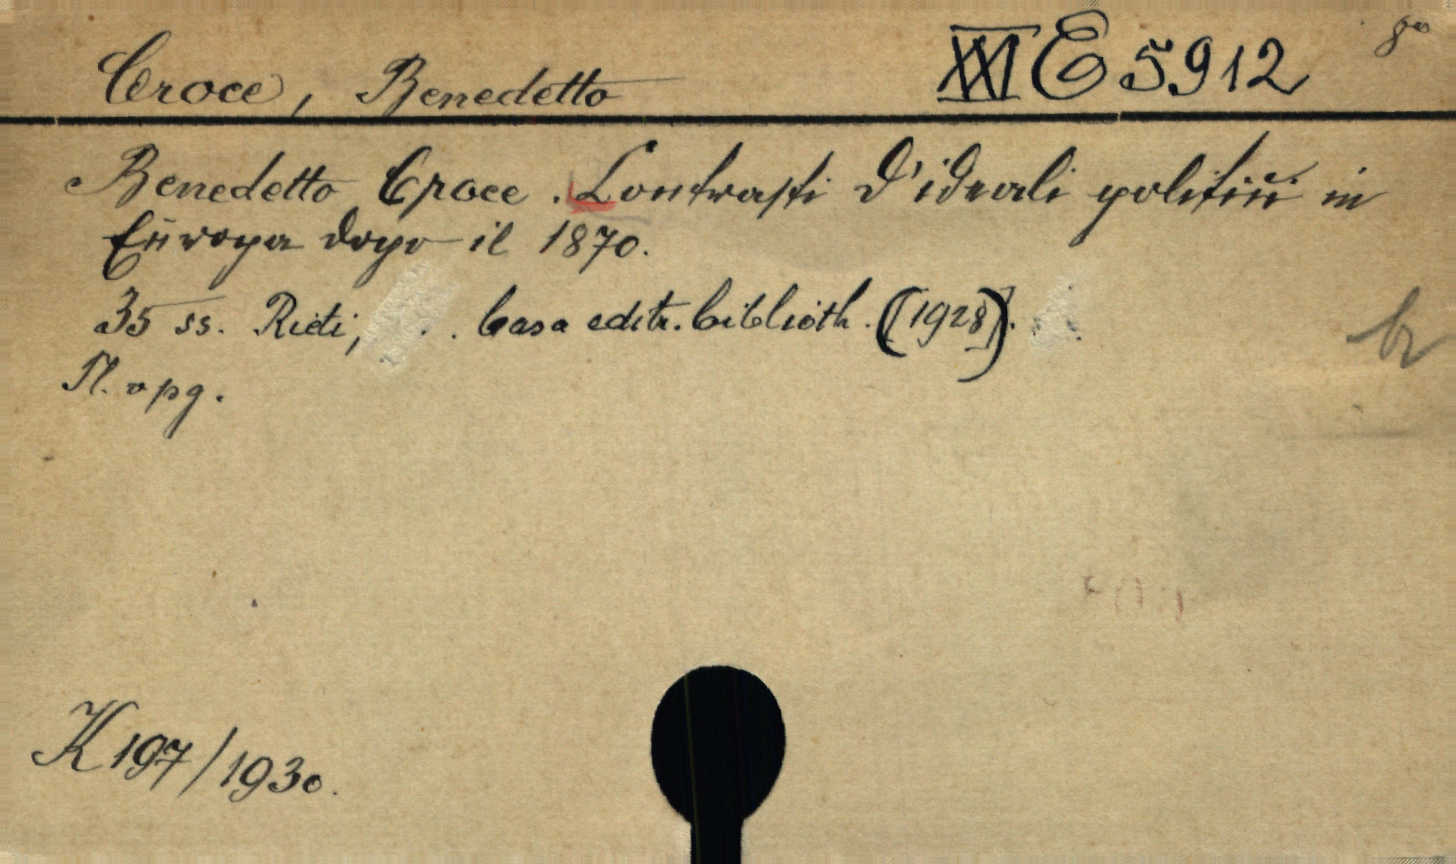 Croce, Benedetto XXI E 5912 8°
Benedetto Croce. Contrasti d'ideali politici in
Europa dopo il 1870.
35 ss. Rieti, . Casa editr. biblioth. ([1928]).
N. opg.
K 197/1930.